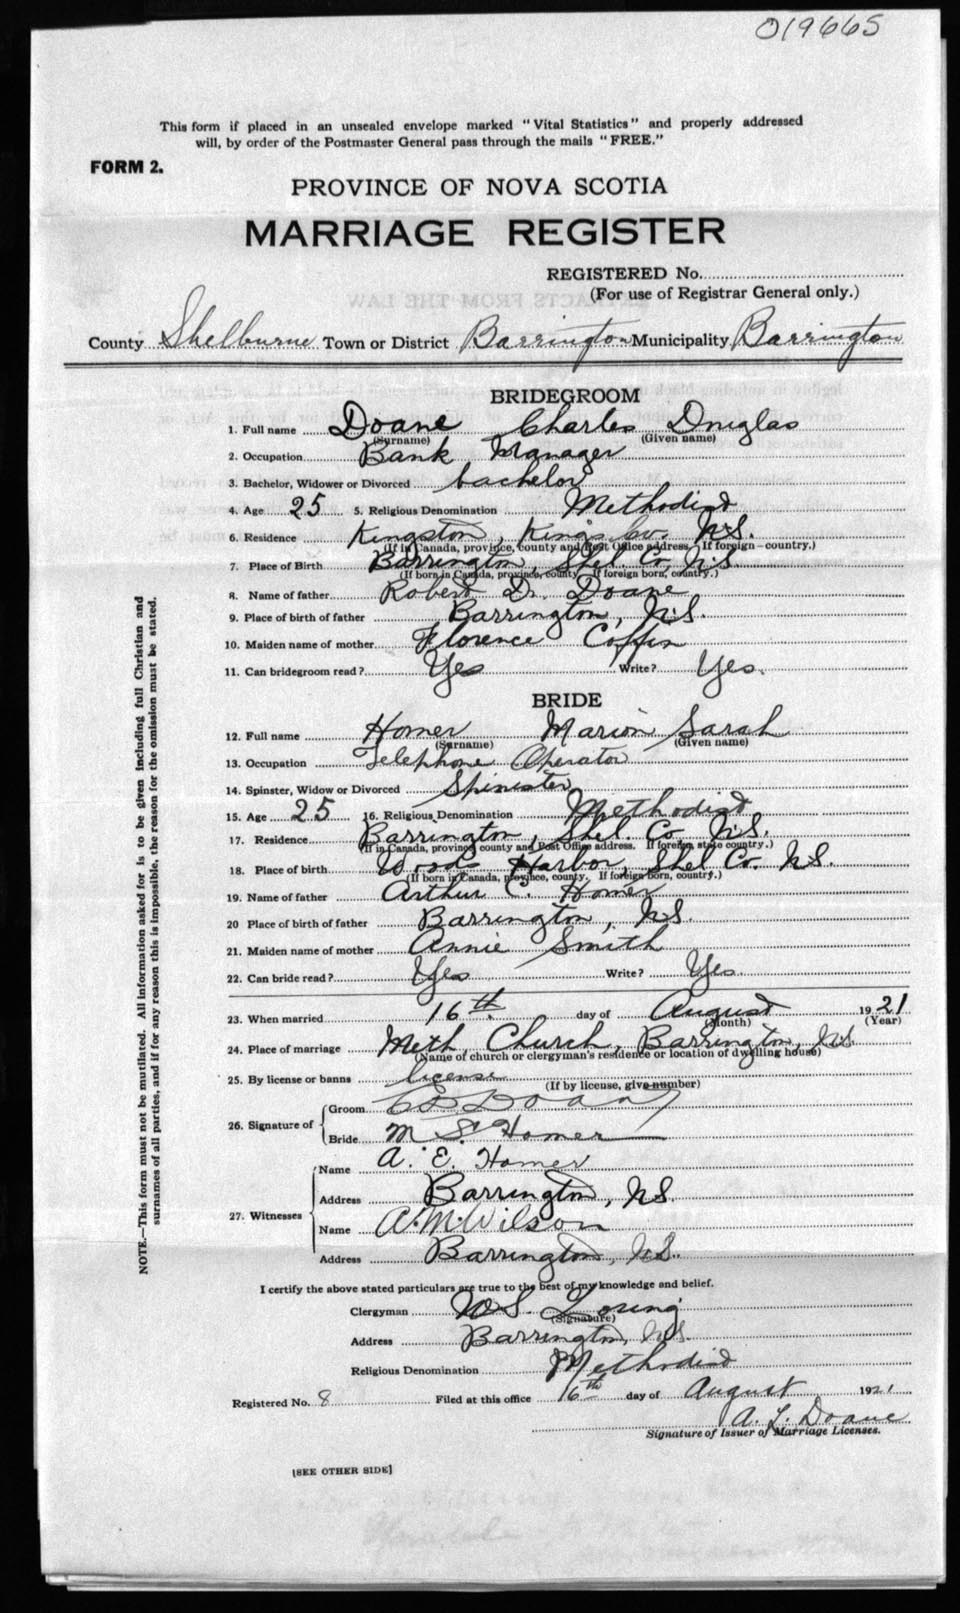 019665
This form if placed in an unsealed envelope marked "Vital Statistics" and properly addressed
will, by order of the Postmaster General pass through the mails "FREE."
FORM 2.
PROVINCE OF NOVA SCOTIA
MARRIAGE REGISTER
REGISTERED No.
(For use of Registrar General only.)
County Shelburne Town or District Barrington Municipality Barrington
BRIDEGROOM
1. Full name Doane Charles Douglas
(Surname) (Given name)
2. Occupation Bank Manager
3. Bachelor, Widower or Divorced bachelor
4. Age 25 5. Religious Denomination Methodist
6. Residence Kingston, Kings Co. N.S.
(If in Canada, province, county and Post Office address. If foreign—country.)
7. Place of Birth Barrington, Shel. Co. N.S.
(If born in Canada, province, county. If foreign born, country.)
8. Name of father Robert Dr. Doane
9. Place of birth of father Barrington, N.S.
10. Maiden name of mother Florence Coffin
11. Can bridegroom read? Yes Write? Yes.
BRIDE
12. Full name Homer Marion Sarah
(Surname) (Given name)
13. Occupation Telephone Operator
14. Spinster, Widow or Divorced Spinister
15. Age 25 16. Religious Denomination Methodist
17. Residence Barrington, Shel. Co. N.S.
(If in Canada, province county and Post Office address. If foreign, state country.)
18. Place of birth Woods Harbor, Shel Co. N.S.
(If born in Canada, province, county. If foreign born, country.)
19. Name of father Arthur C. Homer
20 Place of birth of father Barrington, N.S.
21. Maiden name of mother Annie Smith
22. Can bride read? Yes Write? Yes.
23. When married 16th day of August 1921
(Month) (Year)
24. Place of marriage Meth. Church, Barrington, N.S.
(Name of church or clergyman's residence or location of dwelling house)
25. By license or banns license
(If by license, give number)
26. Signature of Groom C D Doane
Bride M S. Homer
27. Witnesses Name A. E. Homer
Address Barrington, N.S.
Name A. M. Wilson
Address Barrington, N.S.
I certify the above stated particulars are true to the best of my knowledge and belief.
Clergyman W S. Young
(Signature)
Address Barrington, N.S.
Religious Denomination Methodist
Registered No. 8 Filed at this office 16th day of August 1921
A. L. Doane
Signature of Issuer of Marriage Licenses.
[SEE OTHER SIDE]
NOTE.—This form must not be mutilated. All information asked for is to be given including full Christian and
surnames of all parties, and if for any reason this is impossible, the reason for the omission must be stated.